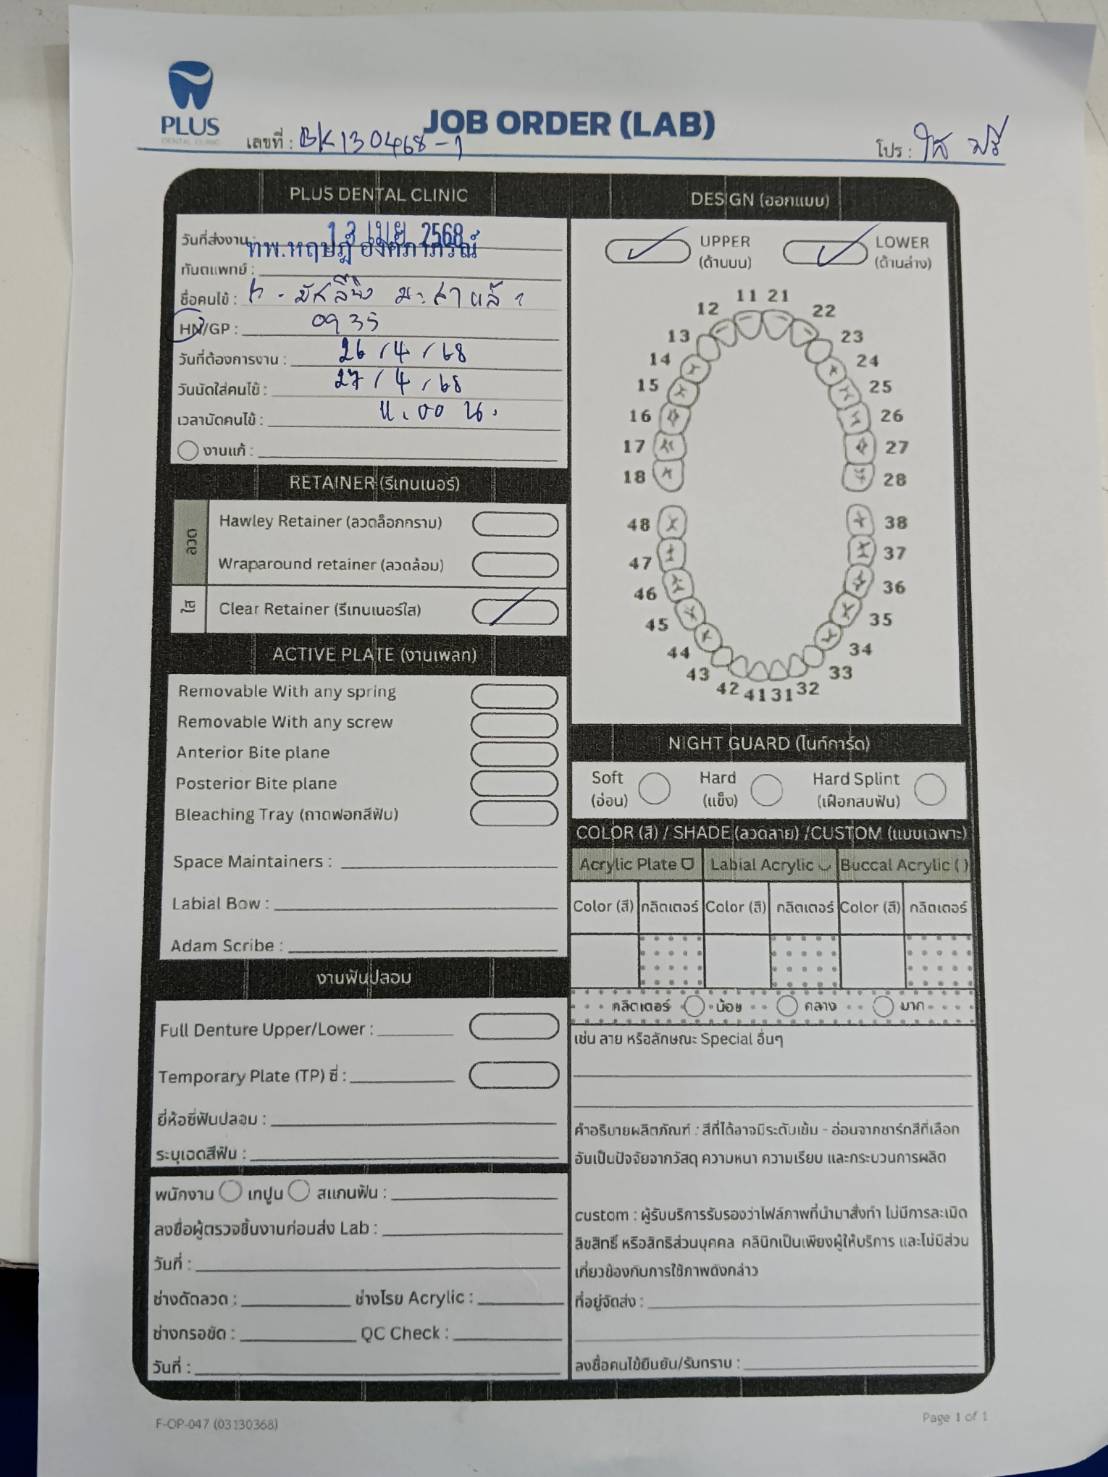 PLUS
DENTAL CLINIC
JOB ORDER (LAB)
เลขที่ : BK130468-1
โปร : ใส ฟรี
PLUS DENTAL CLINIC
วันที่ส่งงาน : 13 เมย 2568
ทันตแพทย์ : ทพ.หฤษฎ์ องศ์ภากรณ์
ชื่อคนไข้ :
HN/GP : 0935
วันที่ต้องการงาน : 26/4/68
วันนัดใส่คนไข้ : 27/4/68
เวลานัดคนไข้ : 11.00 น.
งานแก้ :
RETAINER (รีเทนเนอร์)
ลวด
Hawley Retainer (ลวดล็อกกราม)
Wraparound retainer (ลวดล้อม)
ใส
Clear Retainer (รีเทนเนอร์ใส)
ACTIVE PLATE (งานเพลท)
Removable With any spring
Removable With any screw
Anterior Bite plane
Posterior Bite plane
Bleaching Tray (ถาดฟอกสีฟัน)
Space Maintainers :
Labial Bow :
Adam Scribe :
งานฟันปลอม
Full Denture Upper/Lower :
Temporary Plate (TP) ซี่ :
ยี่ห้อซี่ฟันปลอม :
ระบุเฉดสีฟัน :
พนักงาน เทปูน สแกนฟัน :
ลงชื่อผู้ตรวจชิ้นงานก่อนส่ง Lab :
วันที่ :
ช่างดัดลวด : ช่างโรย Acrylic :
ช่างกรอขัด : QC Check :
วันที่ :
DESIGN (ออกแบบ)
UPPER (ด้านบน) LOWER (ด้านล่าง)
11 21
12 22
13 23
14 24
15 25
16 26
17 27
18 28
48 38
47 37
46 36
45 35
44 34
43 33
42 41 31 32
NIGHT GUARD (ไนท์การ์ด)
Soft (อ่อน) Hard (แข็ง) Hard Splint (เฝือกสบฟัน)
COLOR (สี) / SHADE (ลวดลาย) /CUSTOM (แบบเฉพาะ)
Acrylic Plate Labial Acrylic Buccal Acrylic ( )
Color (สี) กลิตเตอร์ Color (สี) กลิตเตอร์ Color (สี) กลิตเตอร์
กลิตเตอร์ น้อย กลาง มาก
เช่น ลาย หรือลักษณะ Special อื่นๆ
คำอธิบายผลิตภัณฑ์ : สีที่ได้อาจมีระดับเข้ม - อ่อนจากชาร์ทสีที่เลือก
อันเป็นปัจจัยจากวัสดุ ความหนา ความเรียบ และกระบวนการผลิต
custom : ผู้รับบริการรับรองว่าไฟล์ภาพที่นำมาสั่งทำ ไม่มีการละเมิด
ลิขสิทธิ์ หรือสิทธิส่วนบุคคล คลินิกเป็นเพียงผู้ให้บริการ และไม่มีส่วน
เกี่ยวข้องกับการใช้ภาพดังกล่าว
ที่อยู่จัดส่ง :
ลงชื่อคนไข้ยืนยัน/รับทราบ :
F-OP-047 (03130368)
Page 1 of 1